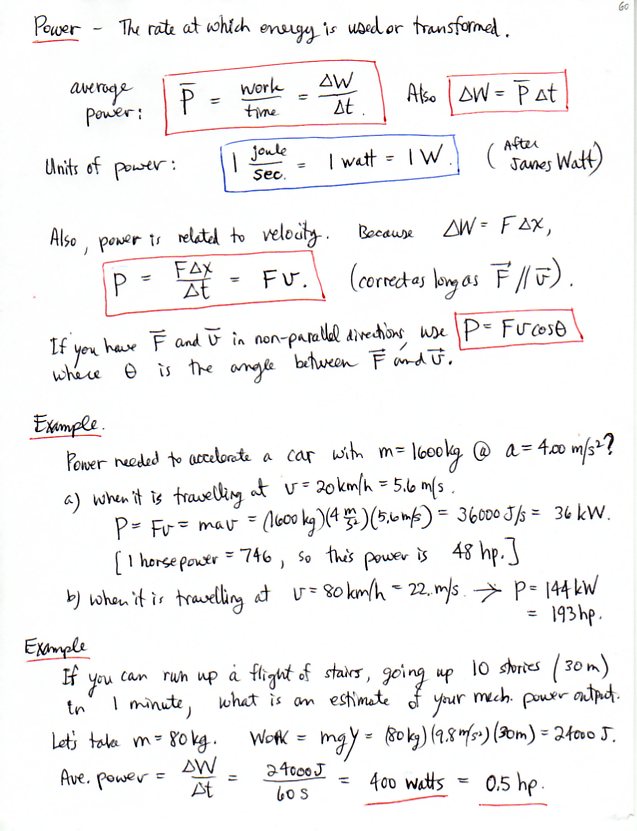 60
Power - The rate at which energy is used or transformed.
average power: P̅ = work/time = ΔW/Δt. Also ΔW = P̅ Δt
Units of power: 1 joule/sec. = 1 watt = 1 W. (After James Watt)
Also, power is related to velocity. Because ΔW = F Δx,
P = FΔx/Δt = Fv. (correct as long as F⃗ // v⃗).
If you have F⃗ and v⃗ in non-parallel directions, use P = Fv cosθ
where θ is the angle between F⃗ and v⃗.
Example.
Power needed to accelerate a car with m = 1600 kg @ a = 4.00 m/s²?
a) when it is travelling at v = 20 km/h = 5.6 m/s.
P = Fv = mav = (1600 kg)(4 m/s²)(5.6 m/s) = 36000 J/s = 36 kW.
[1 horsepower = 746, so this power is 48 hp.]
b) when it is travelling at v = 80 km/h = 22. m/s. → P = 144 kW
= 193 hp.
Example
If you can run up a flight of stairs, going up 10 stories (30 m)
in 1 minute, what is an estimate of your mech. power output.
Let's take m = 80 kg. Work = mgy = (80 kg)(9.8 m/s²)(30m) = 24000 J.
Ave. power = ΔW/Δt = 24000 J/60 s = 400 watts = 0.5 hp.